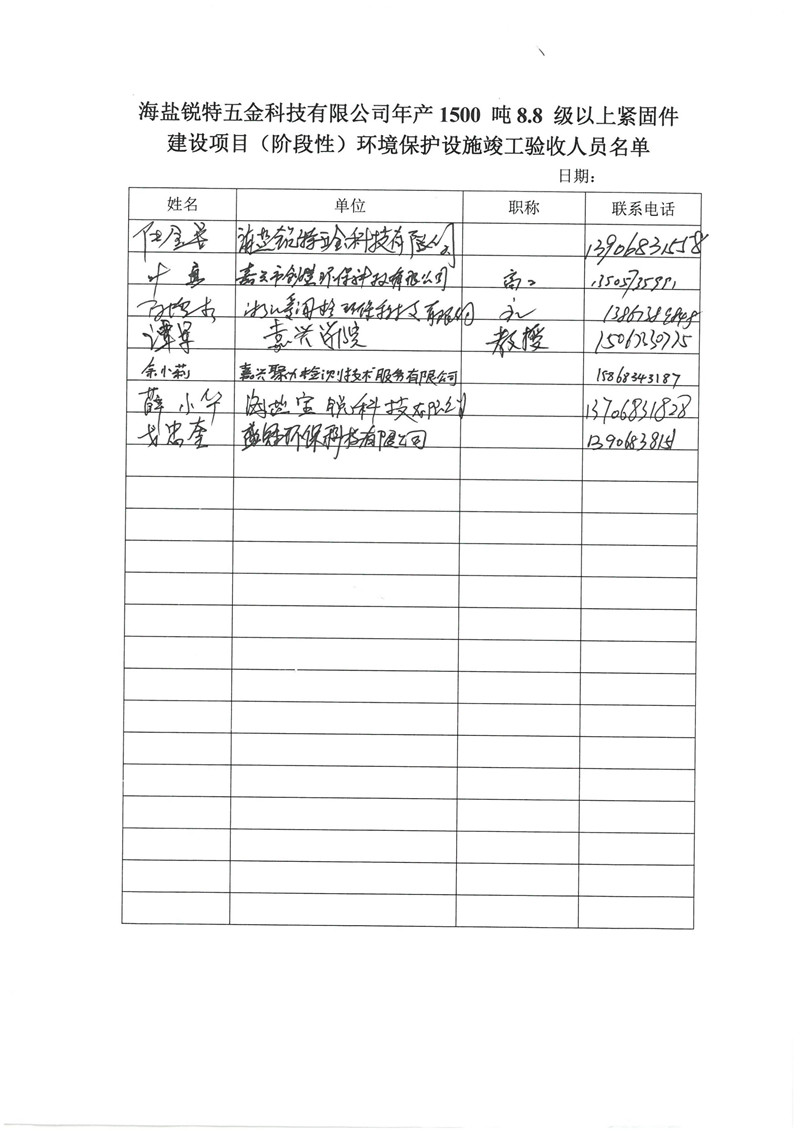 海盐锐特五金科技有限公司年产 1500 吨 8.8 级以上紧固件
建设项目（阶段性）环境保护设施竣工验收人员名单
日期：
姓名 单位 职称 联系电话
海盐锐特五金科技有限公司 13906831558
叶真 嘉兴市创 环保科技有限公司 高工
环保科技有限公司
谭军 嘉兴学院 教授
余小莉 嘉兴聚力检测技术服务有限公司 15868343187
薛小华 海盐宝锐科技有限公司 13706831828
戈忠奎 环保科技有限公司